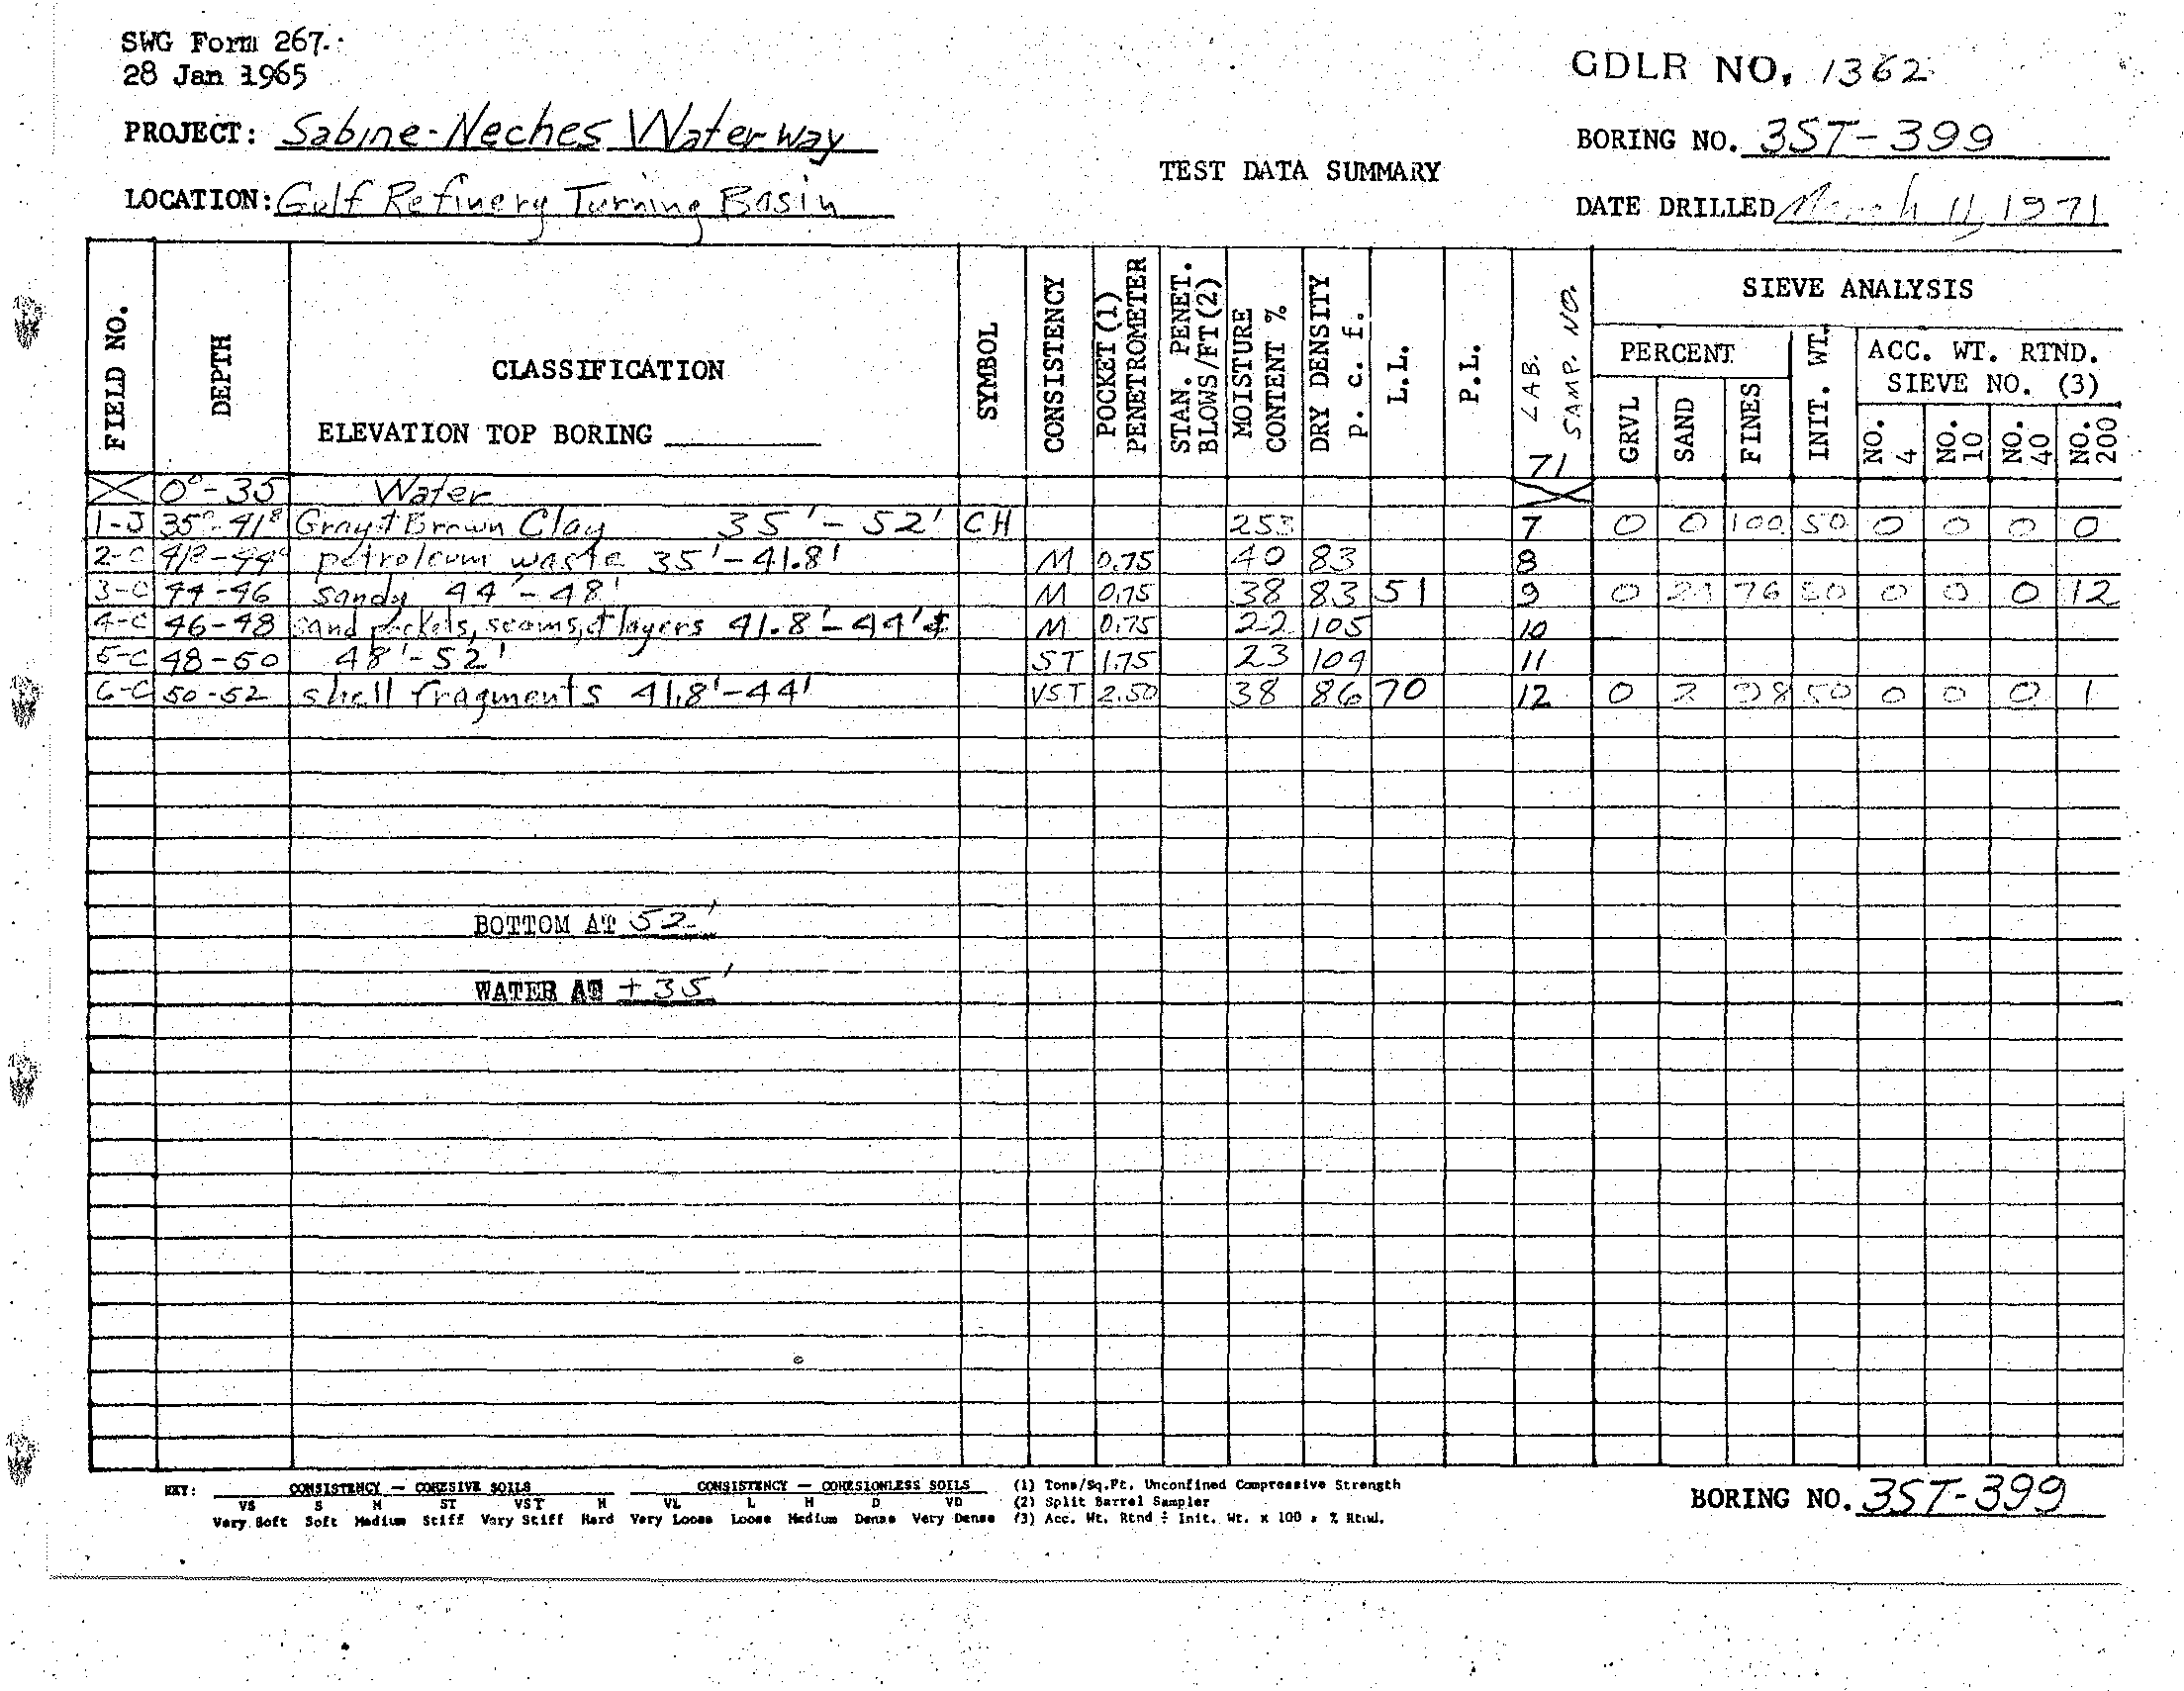 SWG Form 267.
28 Jan 1965
GDLR NO. 1362
PROJECT: Sabine-Neches Waterway
BORING NO. 3ST-399
TEST DATA SUMMARY
LOCATION: Gulf Refinery Turning Basin
DATE DRILLED March 11, 1971
FIELD NO. DEPTH CLASSIFICATION SYMBOL CONSISTENCY POCKET (1) PENETROMETER STAN. PENET. BLOWS/FT (2) MOISTURE CONTENT % DRY DENSITY p. c. f. L.L. P.L. LAB. SAMP. NO. SIEVE ANALYSIS
PERCENT INIT. WT. ACC. WT. RTND. SIEVE NO. (3)
ELEVATION TOP BORING
71 GRVL SAND FINES NO. 4 NO. 10 NO. 40 NO. 200
0⁰-35 Water
1-J 35⁰-41⁸ Gray & Brown Clay 35'-52' CH 253 7 0 0 100 50 0 0 0 0
2-C 41⁸-44⁰ petroleum waste 35'-41.8' M 0.75 40 83 8
3-C 44-46 sandy 44'-48' M 0.75 38 83 51 9 0 24 76 50 0 0 0 12
4-C 46-48 sand pockets, seams, & layers 41.8'-44' & M 0.75 22 105 10
5-C 48-50 48'-52' ST 1.75 23 104 11
6-C 50-52 shell fragments 41.8'-44' VST 2.50 38 86 70 12 0 2 98 50 0 0 0 1
BOTTOM AT 52'
WATER AT + 35'
KEY: CONSISTENCY — COHESIVE SOILS CONSISTENCY — COHESIONLESS SOILS (1) Tons/Sq.Ft. Unconfined Compressive Strength
VS S M ST VST H VL L M D VD (2) Split Barrel Sampler
Very Soft Soft Medium Stiff Very Stiff Hard Very Loose Loose Medium Dense Very Dense (3) Acc. Wt. Rtnd ÷ Init. Wt. x 100 = % Rtnd.
BORING NO. 3ST-399